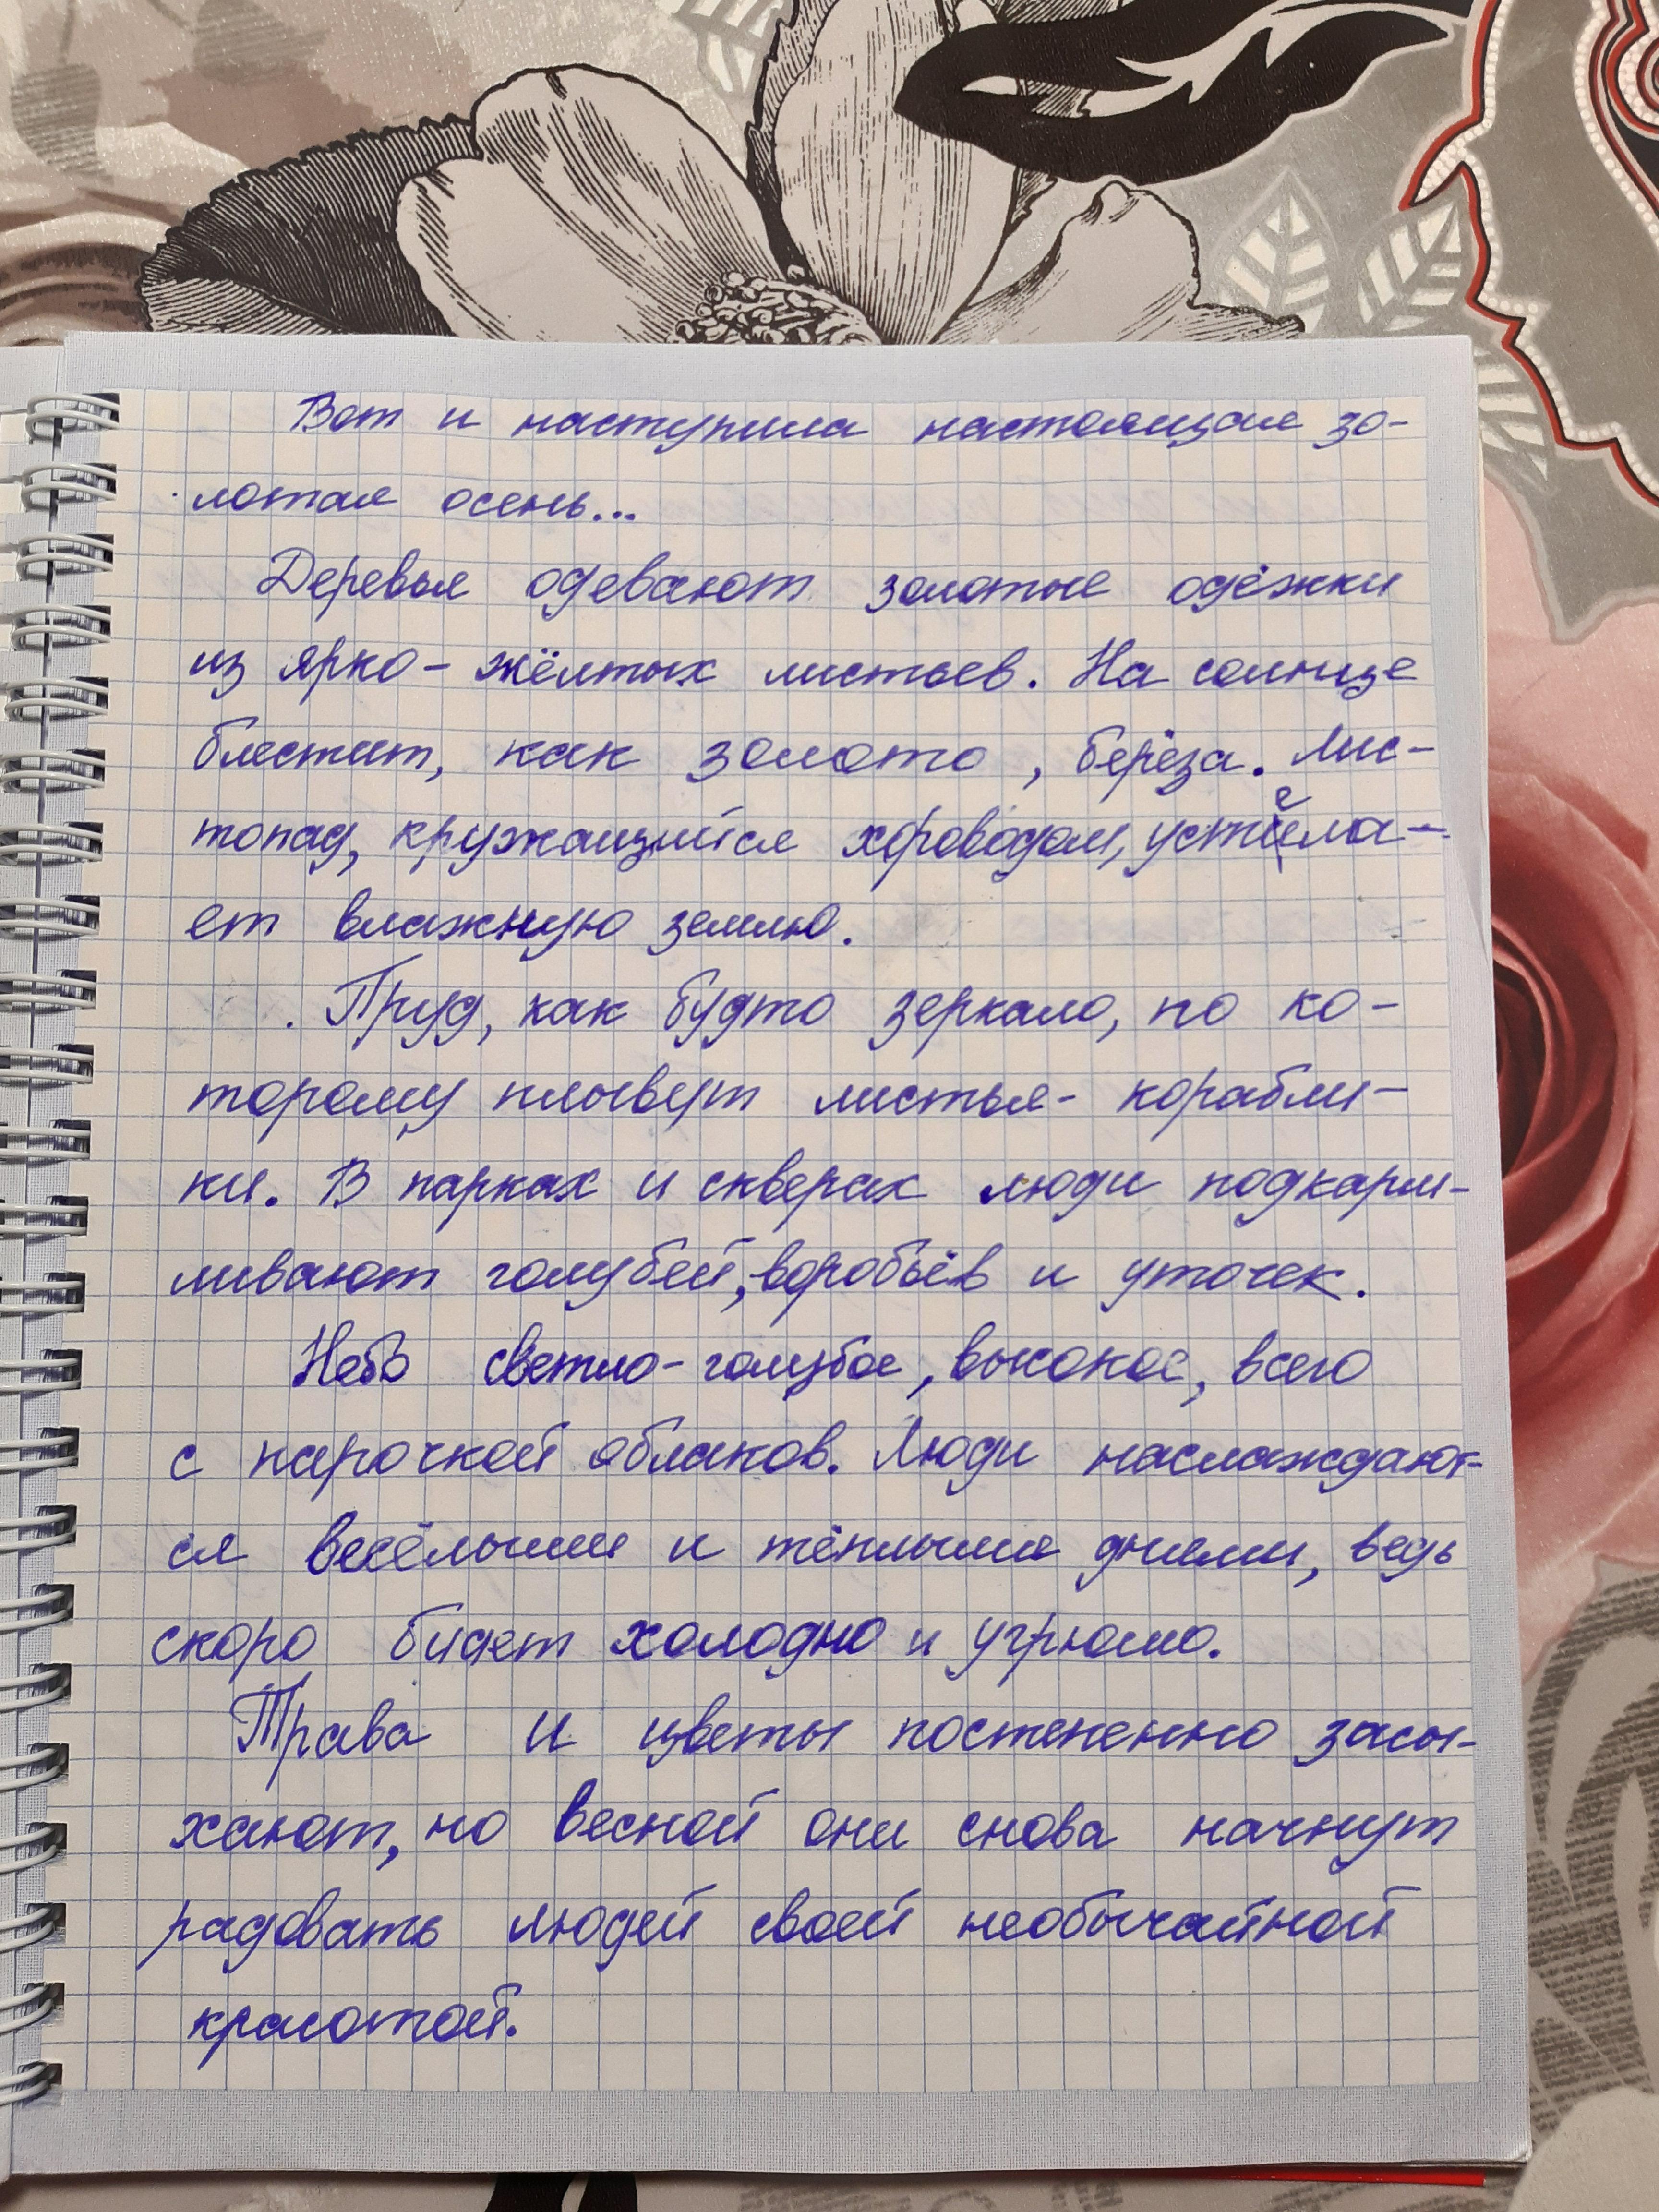 Вот и наступила настоящая зо-
лотая осень...
Деревья одевают золотые одёжки
из ярко-жёлтых листьев. На солнце
блестит, как золото, берёза. Лис-
топад, кружащийся хороводом, устела-
ет влажную землю.
Пруд, как будто зеркало, по ко-
торому плывут листья-корабли-
ки. В парках и скверах люди подкарм-
ливают голубей, воробьёв и уточек.
Небо светло-голубое, высокое, всего
с парочкой облаков. Люди наслаждают-
ся весёлыми и тёплыми днями, ведь
скоро будет холодно и угрюмо.
Трава и цветы постепенно засы-
хают, но весной они снова начнут
радовать людей своей необычайной
красотой.